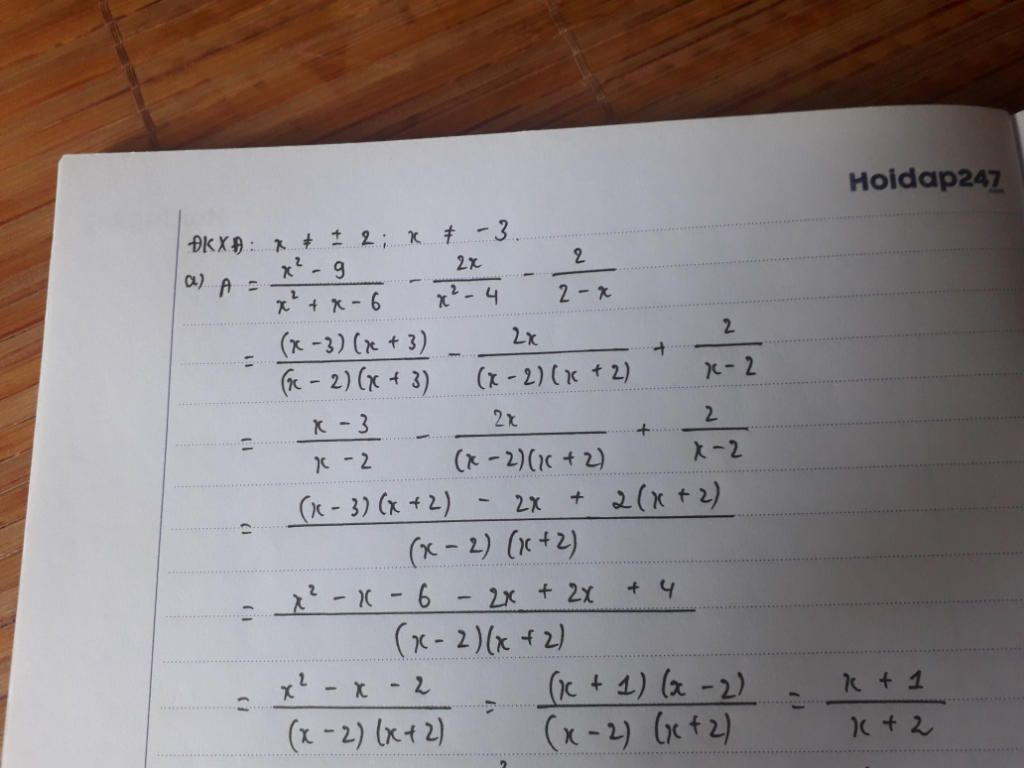 Hoidap247
ĐKXĐ: x ≠ ± 2; x ≠ -3.
a) A = (x² - 9)/(x² + x - 6) - 2x/(x² - 4) - 2/(2 - x)
= ((x - 3)(x + 3))/((x - 2)(x + 3)) - 2x/((x - 2)(x + 2)) + 2/(x - 2)
= (x - 3)/(x - 2) - 2x/((x - 2)(x + 2)) + 2/(x - 2)
= ((x - 3)(x + 2) - 2x + 2(x + 2))/((x - 2)(x + 2))
= (x² - x - 6 - 2x + 2x + 4)/((x - 2)(x + 2))
= (x² - x - 2)/((x - 2)(x + 2)) = ((x + 1)(x - 2))/((x - 2)(x + 2)) = (x + 1)/(x + 2)